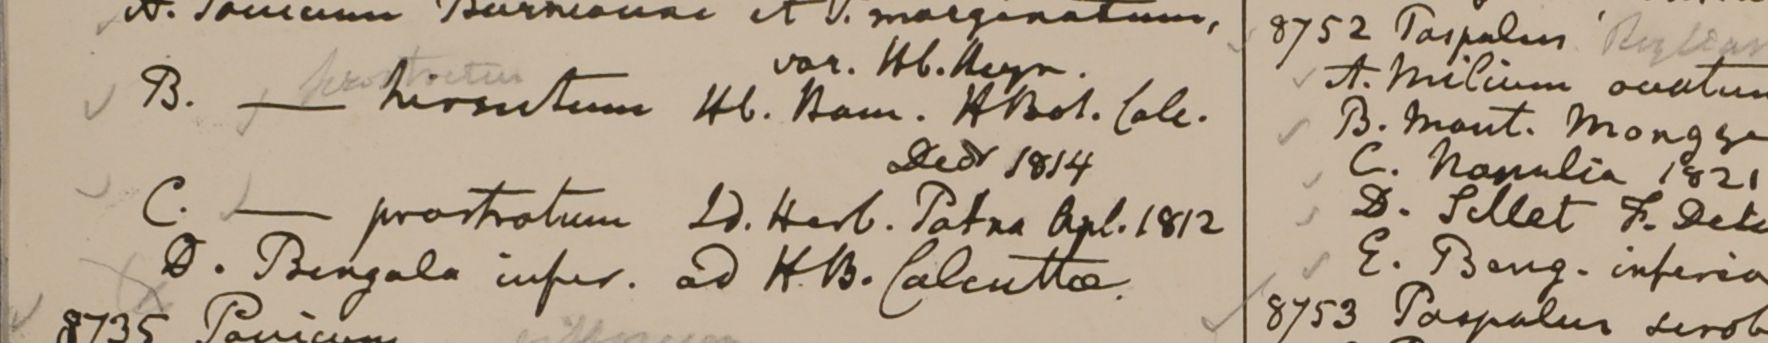 A. Panicum Burmanni et P. marginatum,
var. Hb. Heyn.
prostratum
B. — hirsutum Hb. Ham. H Bot. Calc.
Decr 1814
C. — prostratum Id. Herb. Patna Apl. 1812
D. Bengala infer. ad H. B. Calcuttae.
8735 Panicum
8752 Paspalus
A. Milium ovatum
B. Mont.
C. 1821
D. Sillet F. DeSi
E. Beng. inferio
8753 Paspalus scrob